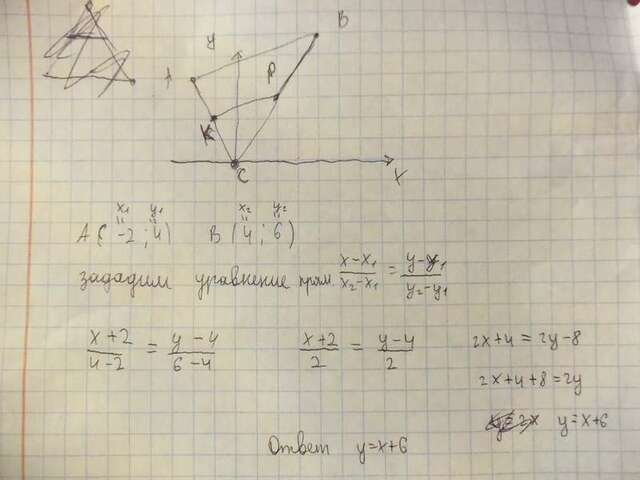 B
y
A
P
K
C
x
x₁ y₁ x₂ y₂
A(-2;4) B(4;6)
зададим уравнение прям. x-x₁/x₂-x₁ = y-y₁/y₂-y₁
x+2/4-2 = y-4/6-4 x+2/2 = y-4/2 2x+4=2y-8
2x+4+8=2y
y=x+6
Ответ y=x+6